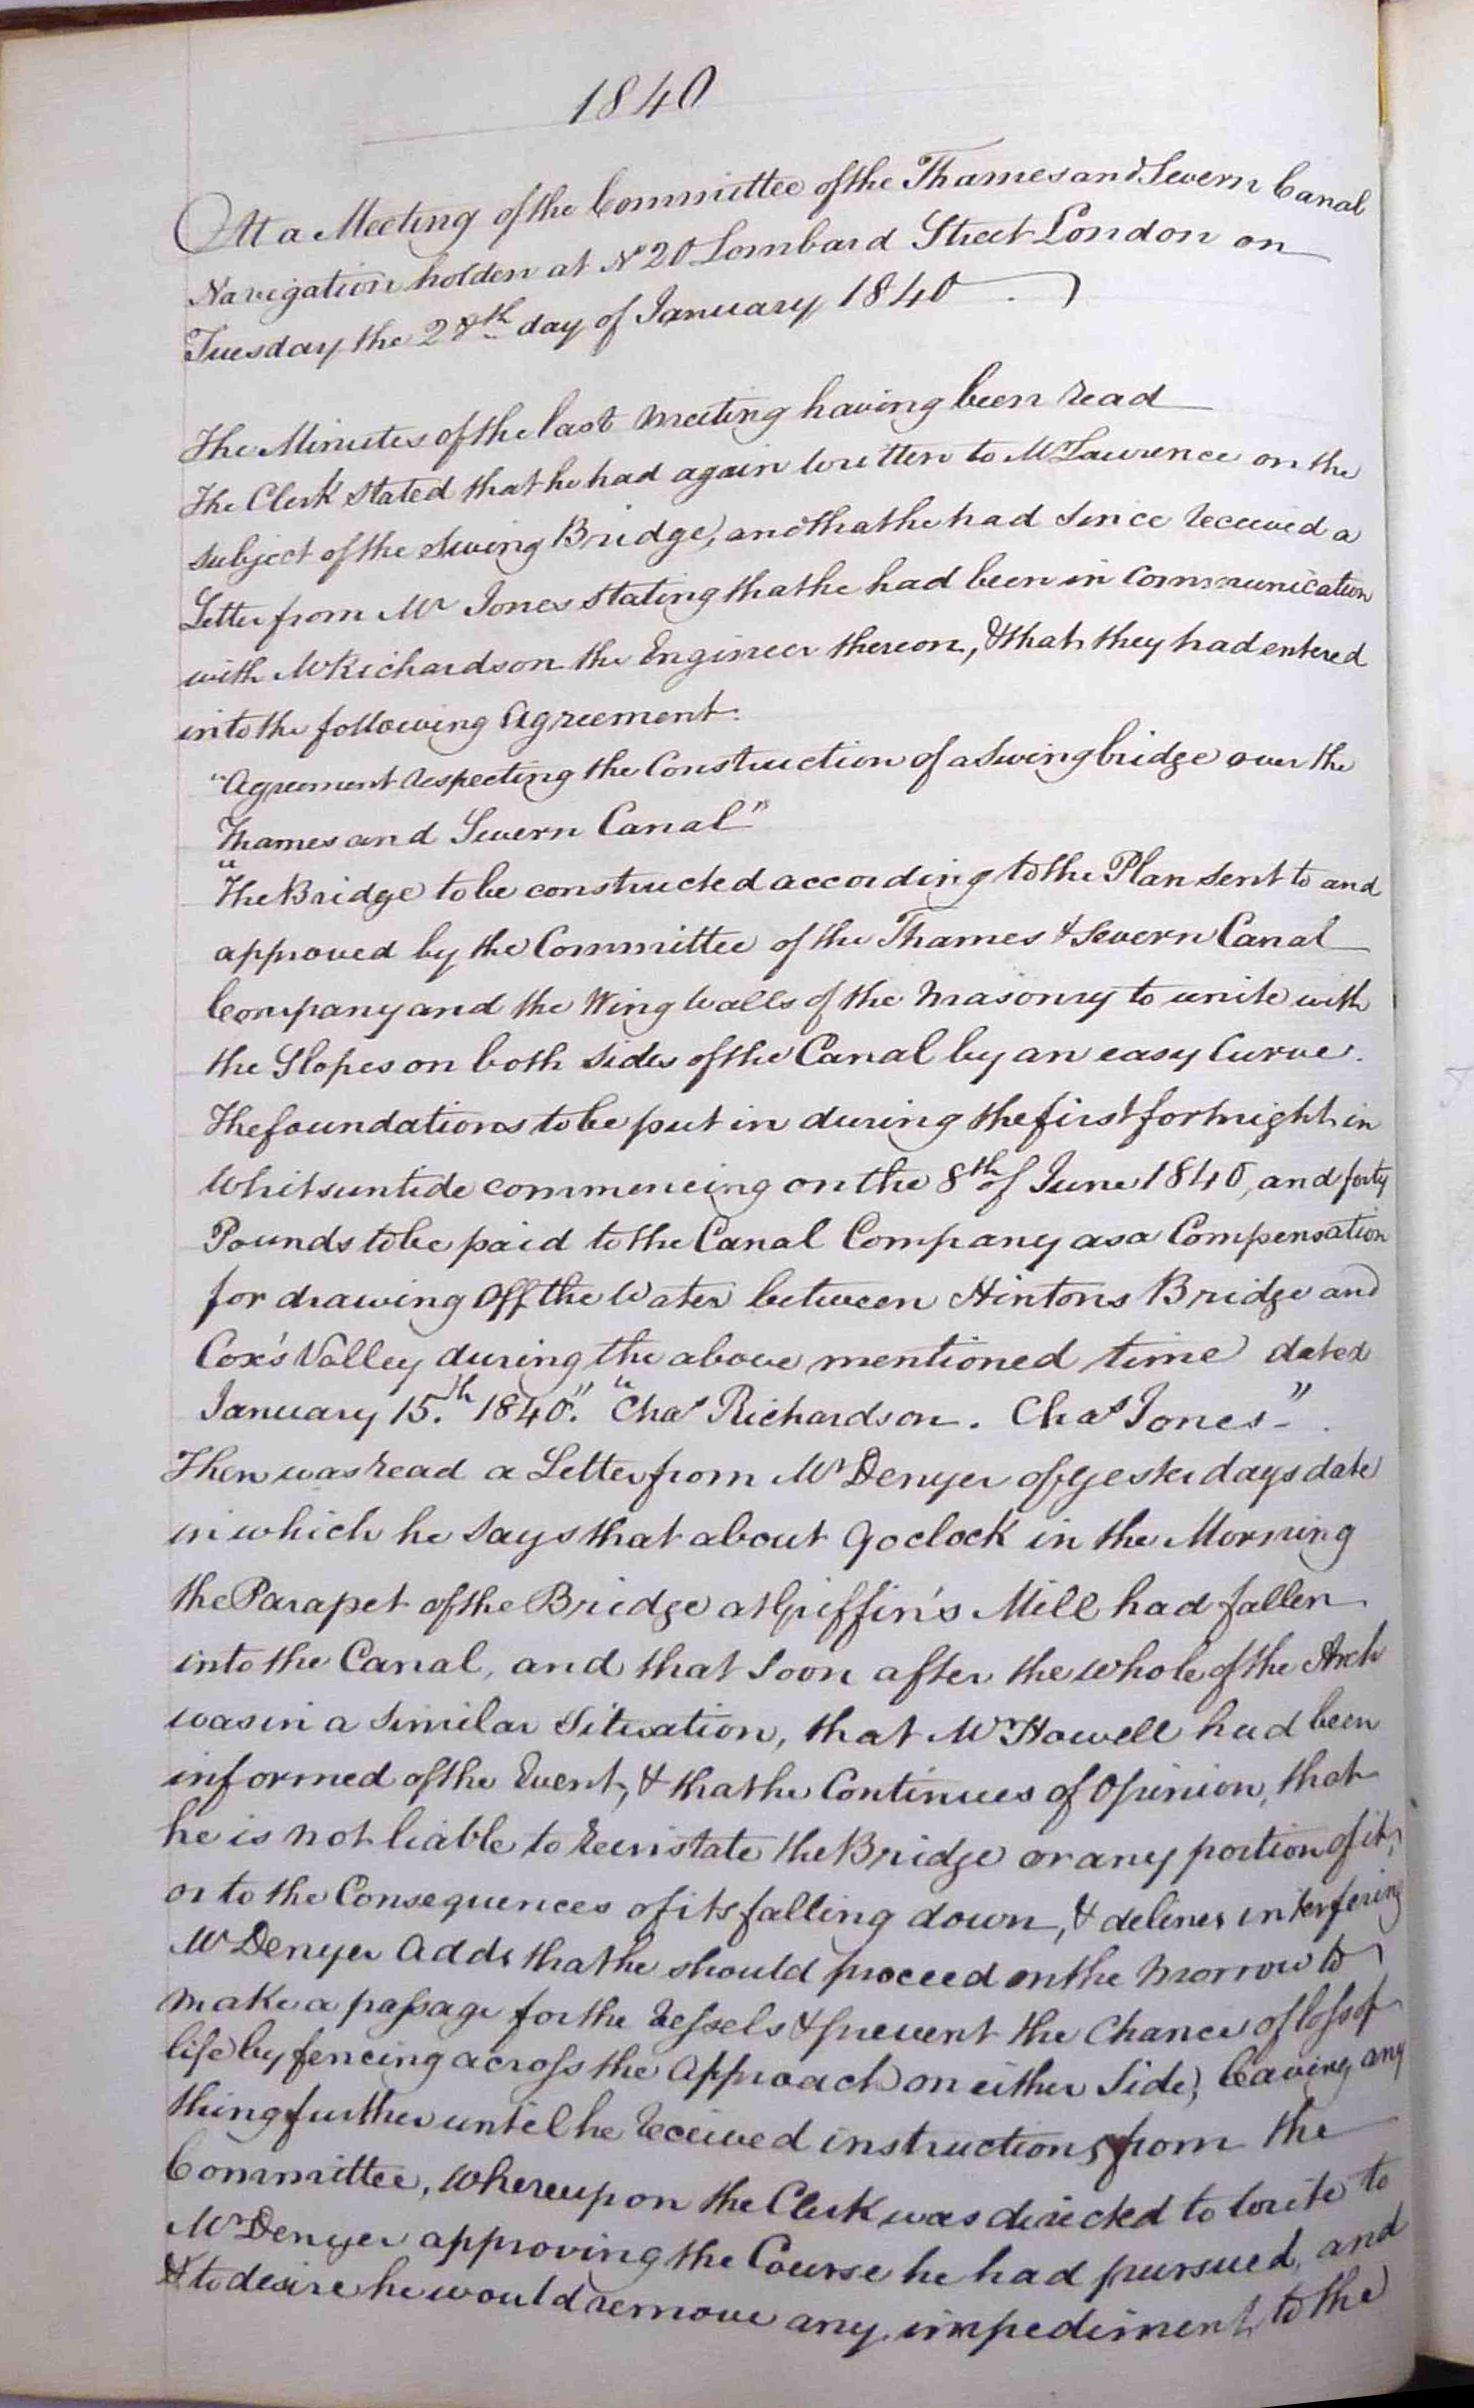 1840
At a Meeting of the Committee of the Thames and Severn Canal
Navigation holden at No 20 Lombard Street London on
Tuesday the 28th day of January 1840
The Minutes of the last meeting having been read
The Clerk stated that he had again written to Mr Lawrence on the
subject of the Swing Bridge, and that he had since received a
Letter from Mr Jones stating that he had been in communication
with Mr Richardson the Engineer thereon, & that they had entered
into the following Agreement.
"Agreement respecting the Construction of a Swing bridge over the
Thames and Severn Canal"
"The Bridge to be constructed according to the Plan sent to and
approved by the Committee of the Thames & Severn Canal
Company and the Wing Walls of the Masonry to unite with
the Slopes on both sides of the Canal by an easy Curve.
The foundations to be put in during the first fortnight in
Whitsuntide commencing on the 8th of June 1840, and forty
Pounds to be paid to the Canal Company as a Compensation
for drawing off the Water between Hintons Bridge and
Cox's Valley during the above mentioned time dated
January 15.th 1840". "Chas Richardson. Chas Jones"
Then was read a Letter from Mr Denyer of yesterdays date
in which he says that about 9 oclock in the Morning
the Parapet of the Bridge at Griffin's Mill had fallen
into the Canal, and that soon after the whole of the Arch
was in a similar Situation, that Mr Howell had been
informed of the Event, & that he Continues of Opinion, that
he is not liable to reinstate the Bridge or any portion of it,
or to the Consequences of its falling down, & delines interfering
Mr Denyer adds that he should proceed on the morrow to
make a passage for the Vessels & prevent the Chance of loss of
life by fencing across the Approach on either Side, leaving any
thing further until he received instructions from the
Committee, Whereupon the Clerk was directed to write to
Mr Denyer approving the Course he had pursued, and
& to desire he would remove any impediment to the